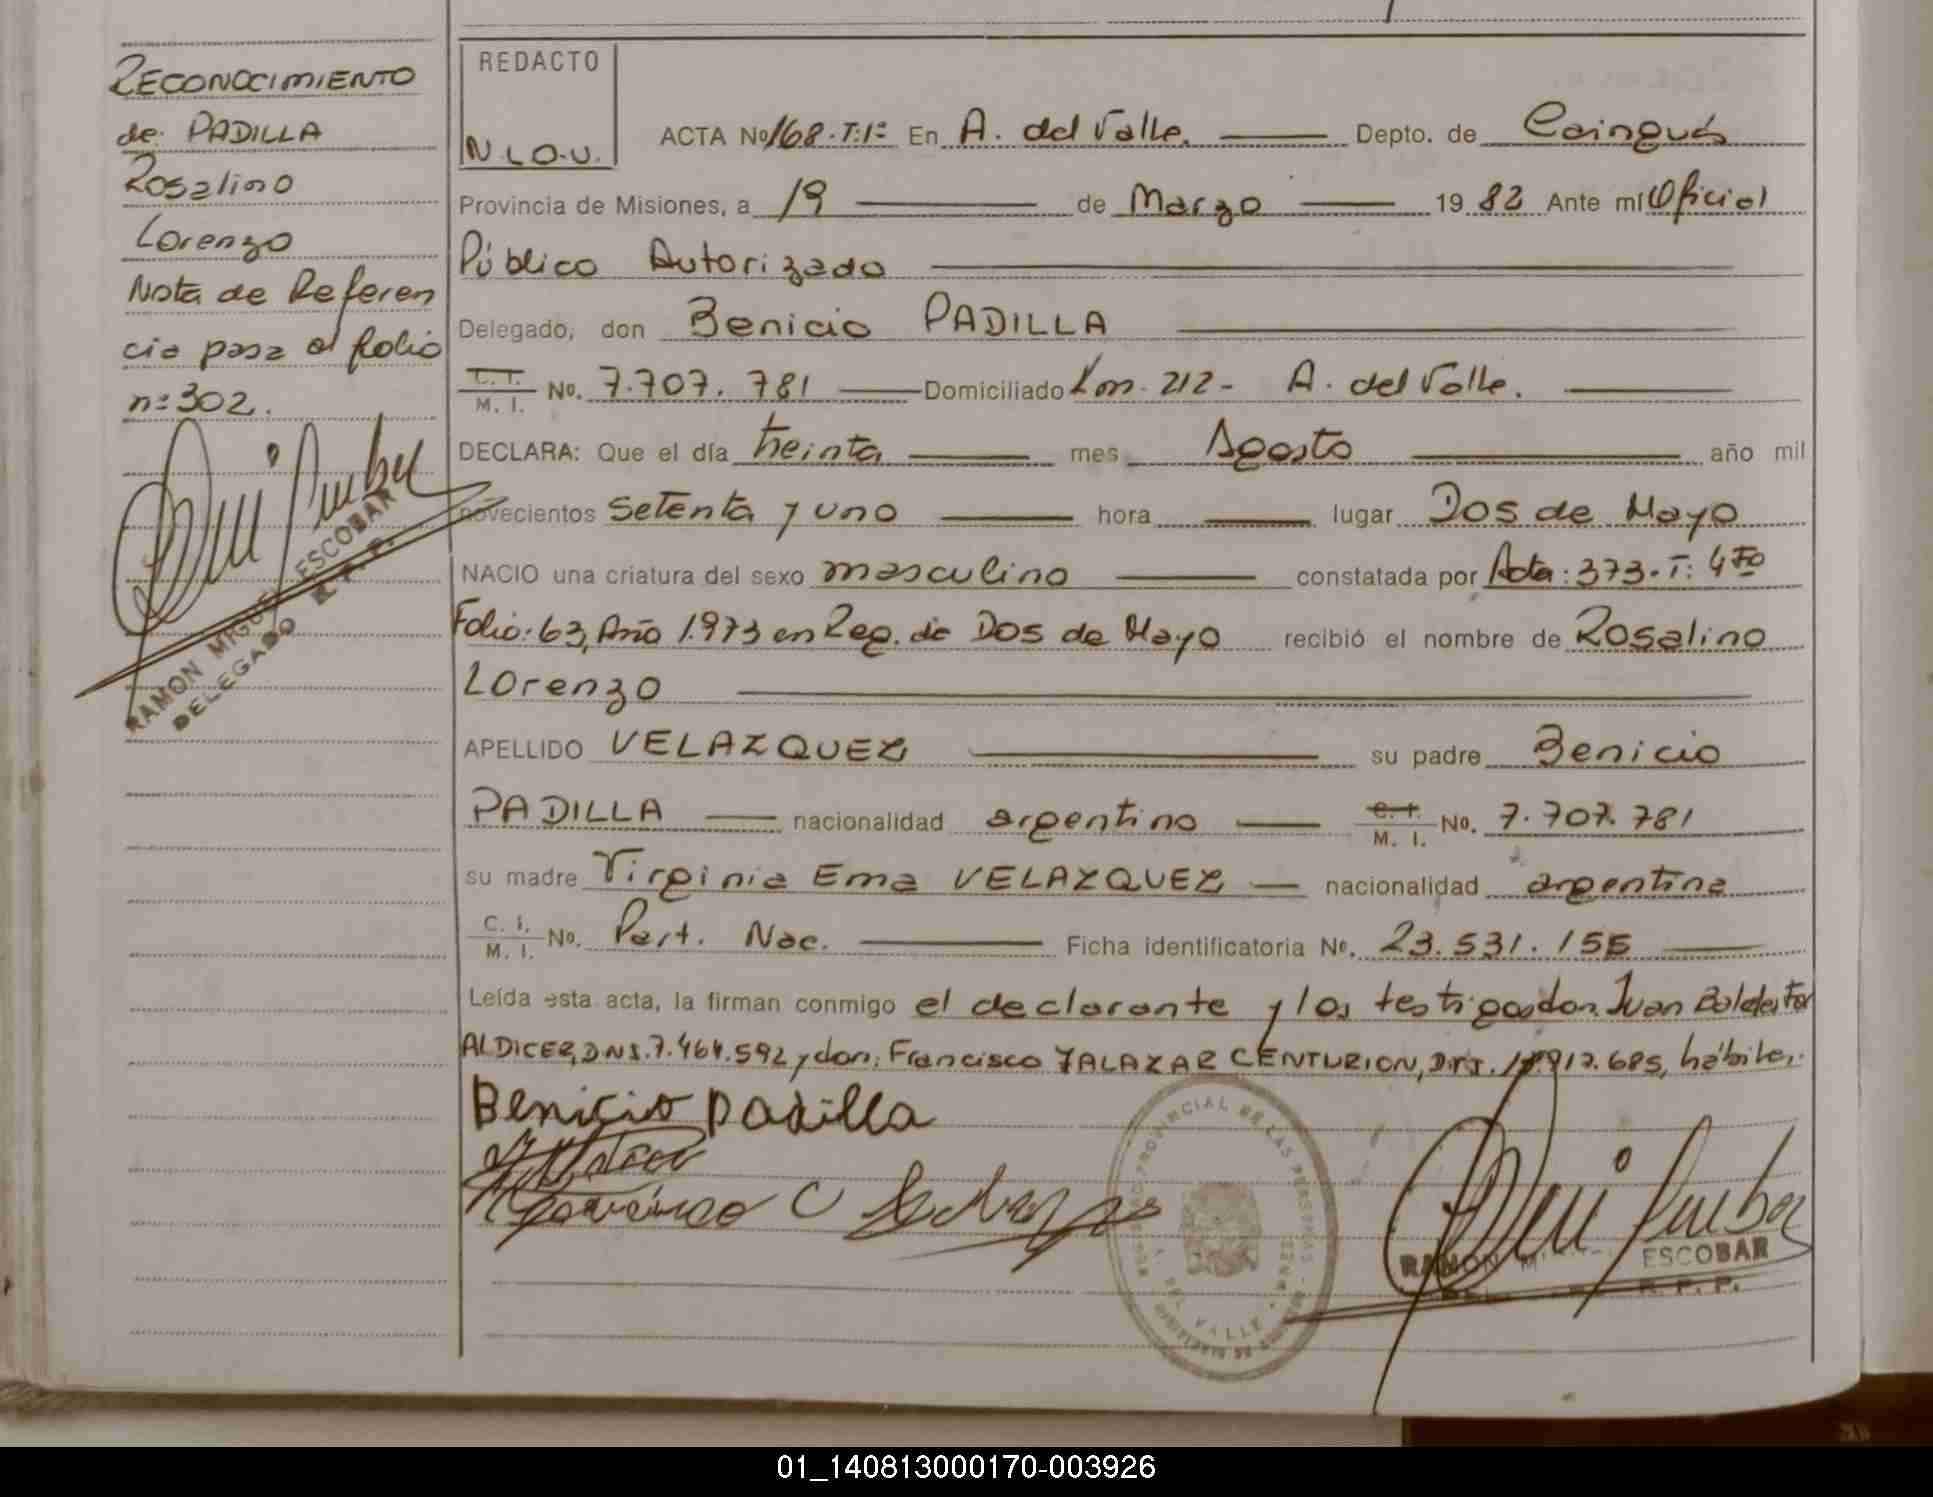 RECONOCIMIENTO
de PADILLA
Rosalino
Lorenzo
Nota de Referen
cia pasa al folio
nº 302.
RAMON MIGUEL ESCOBAR
DELEGADO R. P. P.
REDACTO
N.L.O.V.
ACTA Nº 168. T: 1º En A. del Valle. Depto. de Cainguás
Provincia de Misiones, a 19 de Marzo 19 82 Ante mí Oficial
Público Autorizado
Delegado, don Benicio PADILLA
C. I. M. I. No. 7.707.781 Domiciliado Km. 212 - A. del Valle.
DECLARA: Que el día treinta mes Agosto año mil
novecientos setenta y uno hora lugar Dos de Mayo
NACIO una criatura del sexo masculino constatada por Acta: 373. T: 4to
Folio: 63, Año 1.973 en Reg. de Dos de Mayo recibió el nombre de Rosalino
Lorenzo
APELLIDO VELAZQUEZ su padre Benicio
PADILLA nacionalidad argentino C. I. M. I. No. 7.707.781
su madre Virginia Ema VELAZQUEZ nacionalidad argentina
C. I. M. I. No. Part. Nac. Ficha identificatoria No. 23.531.155
Leída esta acta, la firman conmigo el declarante y los testigos don Juan
ALDICER, D.N.I. 7.464.592 y don: Francisco ZALAZAR CENTURION, D.N.I. 912.685, hábiles.
Benicio Padilla
PROVINCIAL DE LAS PERSONAS
A. DEL VALLE
RAMON M ESCOBAR
R. P. P.
01_140813000170-003926